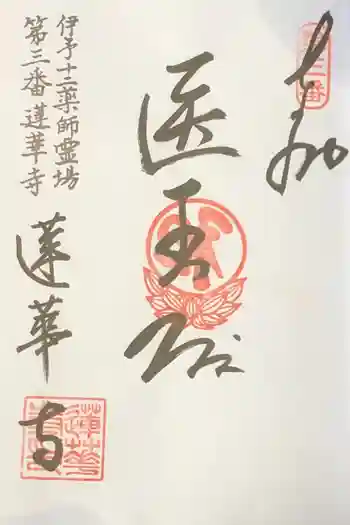 奉拝
第三番
医王殿
伊予十二薬師霊場
第三番 蓮華寺
蓮華寺